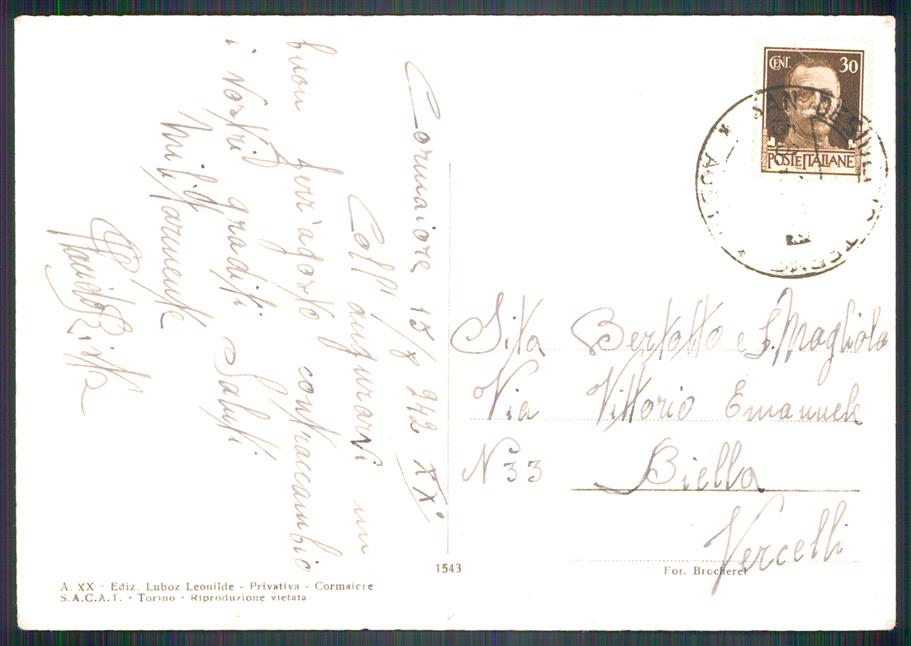 Cormaiore 15/8 942 XX°
Coll' augurarvi un
buon ferr'agosto contraccambio
i vostri graditi Saluti
Militarmente
CENT. 30
POSTE ITALIANE
SAN DESIDERIO TERME
AOSTA
Bertotto e S. Magliola
Via Vittorio Emanuele
N° 33 Biella
Vercelli
1543
Fot. Brocherel
A. XX - Ediz. Luboz Leonilde - Privativa - Cormaiore
S.A.C.A.T. - Torino - Riproduzione vietata